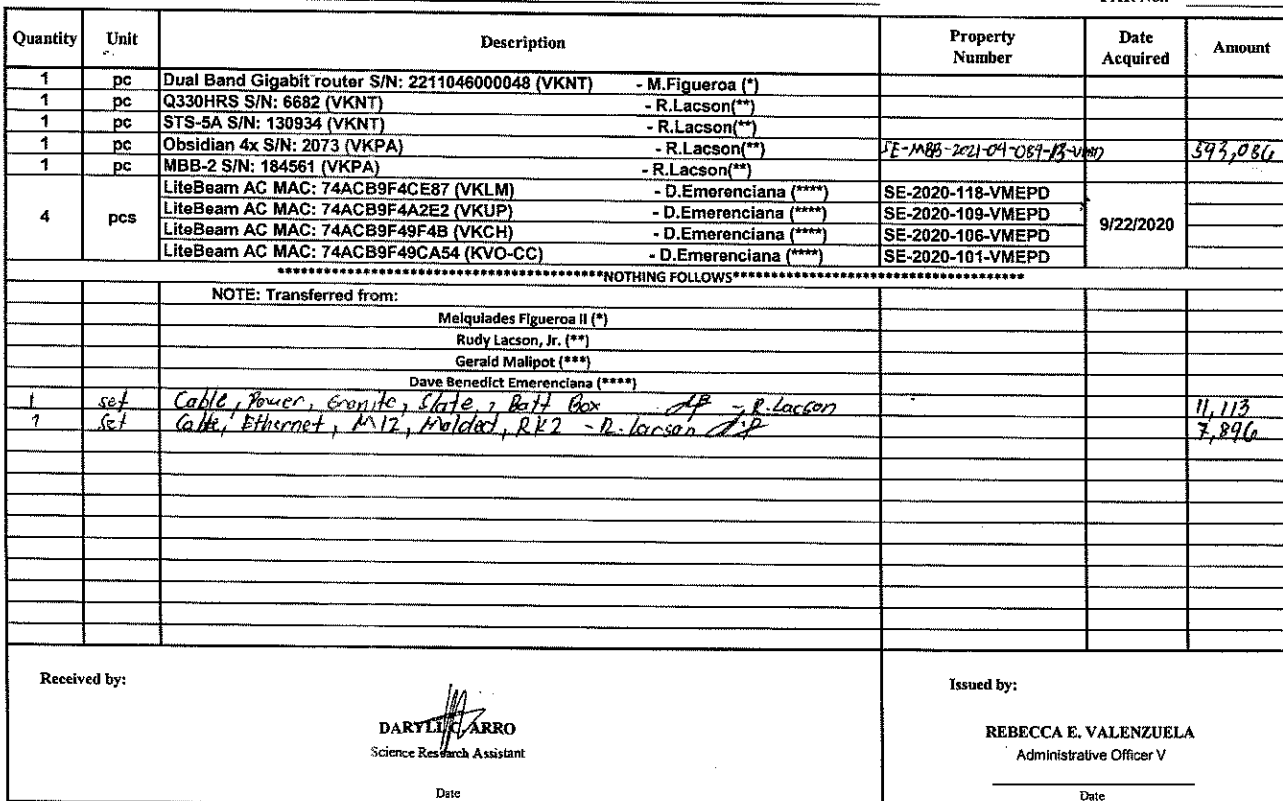 Quantity Unit Description Property Number Date Acquired Amount
1 pc Dual Band Gigabit router S/N: 2211046000048 (VKNT) - M.Figueroa (*)
1 pc Q330HRS S/N: 6682 (VKNT) - R.Lacson(**)
1 pc STS-5A S/N: 130934 (VKNT) - R.Lacson(**)
1 pc Obsidian 4x S/N: 2073 (VKPA) - R.Lacson(**) 593,086
1 pc MBB-2 S/N: 184561 (VKPA) - R.Lacson(**)
4 pcs LiteBeam AC MAC: 74ACB9F4CE87 (VKLM) - D.Emerenciana (****) SE-2020-118-VMEPD 9/22/2020
LiteBeam AC MAC: 74ACB9F4A2E2 (VKUP) - D.Emerenciana (****) SE-2020-109-VMEPD
LiteBeam AC MAC: 74ACB9F49F4B (VKCH) - D.Emerenciana (****) SE-2020-106-VMEPD
LiteBeam AC MAC: 74ACB9F49CA54 (KVO-CC) - D.Emerenciana (****) SE-2020-101-VMEPD
*****************************************NOTHING FOLLOWS*****************************************
NOTE: Transferred from:
Melquiades Figueroa II (*)
Rudy Lacson, Jr. (**)
Gerald Malipot (***)
Dave Benedict Emerenciana (****)
1 set Cable, Power, Granite, Slate, Batt Box - R.Lacson 11,113
1 set Cable, Ethernet, M12, Molded, RK2 - R.Lacson 7,896
Received by: Issued by:
DARYL C. ARRO
Science Research Assistant
REBECCA E. VALENZUELA
Administrative Officer V
Date Date